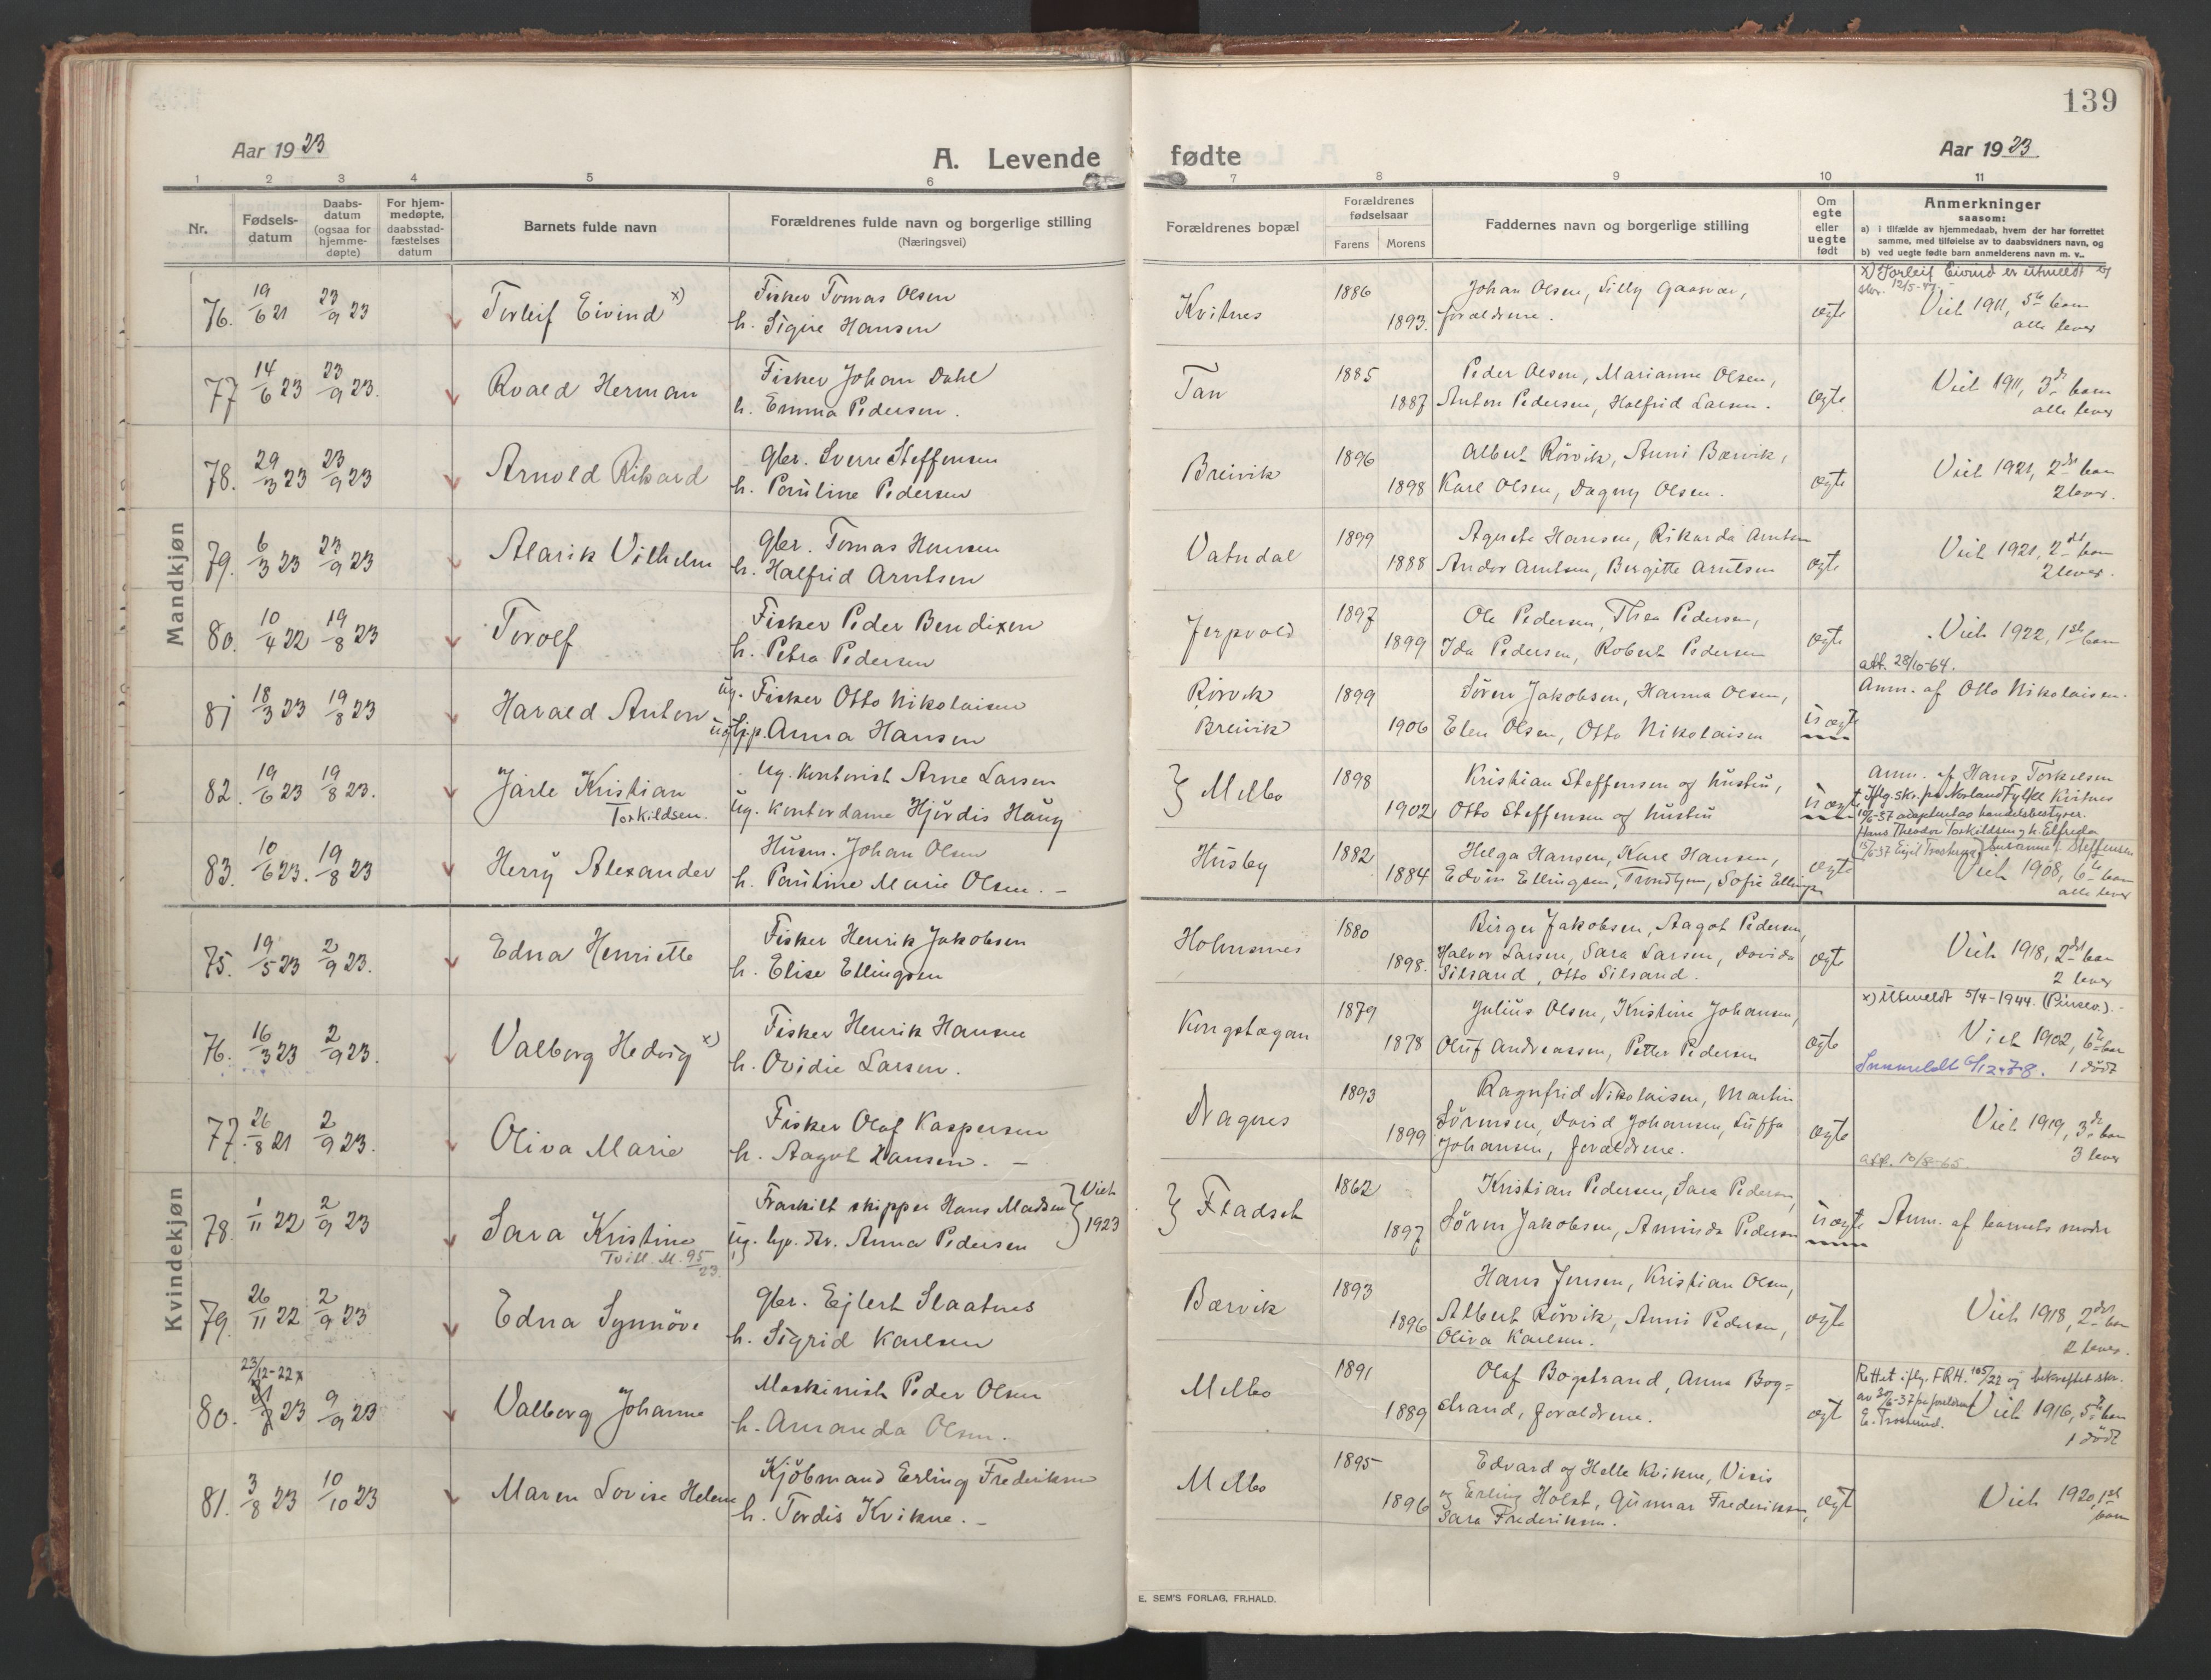 139
Aar 1923
A. Levende fødte
Aar 1923
1 2 3 4 5 6 7 8 9 10 11
Nr.
Fødsels-
datum
Daabs-
datum
(ogsaa for
hjemme-
døpte)
For hjem-
medøpte,
daabsstad-
fæstelses
datum
Barnets fulde navn
Forældrenes fulde navn og borgerlige stilling
(Næringsvei)
Forældrenes bopæl
Forældrenes
fødselsaar
Farens Morens
Faddernes navn og borgerlige stilling
Om
egte
eller
uegte
født
Anmerkninger
saasom:
a) i tilfælde av hjemmedaab, hvem der har forrettet
samme, med tilføielse av to daabsvidners navn, og
b) ved uegte fødte barn anmelderens navn m. v..
Mandkjøn
76. 19/6 21 23/9 23 Torleif Eivind x)
Fisker Tomas Olsen
h. Signe Hansen
Kvitnes 1886 1893.
Johan Olsen, Silly Gaasvær,
forældrene.
ægte
x) Torleif Eivind er utmeldt
Viet 1911, 5te barn
alle lever
77 14/6 23 23/9 23. Roald Herman
Fisker Johan Dahl
h. Emma Pedersen.
Tan 1885 1887
Peder Olsen, Marianne Olsen,
Anton Pedersen, Halfrid Larsen.
ægte
Viet 1911, 3de barn
alle lever
78. 29/3 23 23/9 23 Arnold Rikard
gbr. Sverre Steffensen
h. Pauline Pedersen
Breivik 1896 1898
Albert Rörvik, Anni Bærvik,
Karl Olsen, Dagny Olsen.
ægte
Viet 1921, 2det barn
2 lever.
79. 6/3 23 23/9 23 Alarik Vilhelm
gbr. Tomas Hansen
h. Halfrid Arntsen
Vatndal 1899 1888
Agnete Hansen, Rikarda Arntsen
Andor Arntsen, Bergitte Arntsen
ægte
Viet 1921, 2det barn
2 lever.
80. 10/4 22 19/8 23 Torolf
Fisker Peder Bendixen
h. Petra Pedersen
Jerpvold 1897 1899
Ole Pedersen, Thea Pedersen,
Ida Pedersen, Robert Pedersen
ægte
Viet 1922, 1ste barn
att. 28/10-64.
81 18/3 23 19/8 23 Harald Anton
ug. Fisker Otto Nikolaisen
ug. tj.p. Anna Hansen
Rörvik
Breivik
1899 1906
Sören Jakobsen, Hanna Olsen,
Elen Olsen, Otto Nikolaisen
uægte
Anm. af Otto Nikolaisen.
82. 19/6 23 19/8 23. Jarle Kristian
Torkildsen.
Ug. kontorist Arne Larsen
Ug. kontordame Hjördis Haug
Melbo 1898 1902
Kristian Steffensen og hustru,
Otto Steffensen og hustru
uægte
Anm. af Hans Torkelsen
Iflg. skr. fra Nordland fylke
10/6-37 adoptertas handelsbestyrer
Hans Theodor Torkildsen og h. Elfreda
Susanne f. Steffensen
83. 10/6 23. 19/8 23 Herry Alexander
Husm. Johan Olsen
h. Pauline Marie Olsen.
Husby 1882 1884
Helga Hansen, Karl Hansen,
Edvin Ellingsen, Trondhjem, Sofie Ellingsen
ægte
Viet 1908, 6te barn
alle lever
Kvindekjøn
75. 19/5 23 2/9 23. Edna Henriette
Fisker Henrik Jakobsen
h. Elise Ellingsen
Holmsnes 1880 1898.
Birger Jakobsen, Aagot Pedersen,
Halvor Larsen, Sara Larsen, Davida
Silsand, Otto Silsand.
ægte
Viet 1918, 2det barn
2 lever
76. 16/3 23 2/9 23. Valborg Hedvig x)
Fisker Henrik Hansen
h. Ovidie Larsen.
Kongshagan 1879 1878
Julius Olsen, Kristine Johansen,
Oluf Andreassen, Petter Pedersen
ægte
x) Utmeldt 5/4-1944. (Pinsev.).
Viet 1902, 6te barn
1 död
Innmeldt 6/12-78.
77. 26/8 21 2/9 23. Oliva Marie
Fisker Olaf Kaspersen
h. Aagot Hansen.
Nagnes 1893 1899
Ragnfrid Nikolaisen, Martin
Sörensen, David Johansen, Luffa
Johansen, forældrene.
ægte
Viet 1919, 3de barn
3 lever
att. 10/8-65.
78. 1/11 22 2/9 23 Sara Kristine
Tvill. M. 95/23.
Fraskilt skipper Hans Madsen
ug. hp. Anna Pedersen
Viet
1923
Fladset 1862 1897
Kristian Pedersen, Sara Pedersen,
Sören Jakobsen, Aminda Pedersen
uægte
Anm. af barnets moder
79. 26/11 22 2/9 23 Edna Synnöve
gbr. Ejlert Slaatnes
h. Sigrid Karlsen
Bærvik 1893 1896
Hans Jensen, Kristian Olsen,
Albert Rörvik, Anni Pedersen,
Oliva Karlsen.
ægte
Viet 1918, 2det barn
2 lever.
23/12-22 x
80. 23 9/9 23 Valborg Johanne
Maskinist Peder Olsen
h. Amanda Olsen.
Melbo 1891 1889
Olaf Bogstrand, Anna Bog=
strand, forældrene.
ægt
Rettet iflg. FRH. 105/22 og bekreftet skr.
av 30/6-37 fra foreldrene
E. Trosterud.
Viet 1916, 5te barn
1 död
81. 3/8 23 10/10 23 Maren Lovise Helene
Kjöbmand Erling Frederiksen
h. Tordis Kvikne.
Melbo 1895 1896
Edvard og Helle Kvikne, Visis
og Erling Holst, Gunnar Frederiksen,
Sara Frederiksen.
ægt
Viet 1920, 1ste
barn
E. SEM'S FORLAG, FR.HALD.